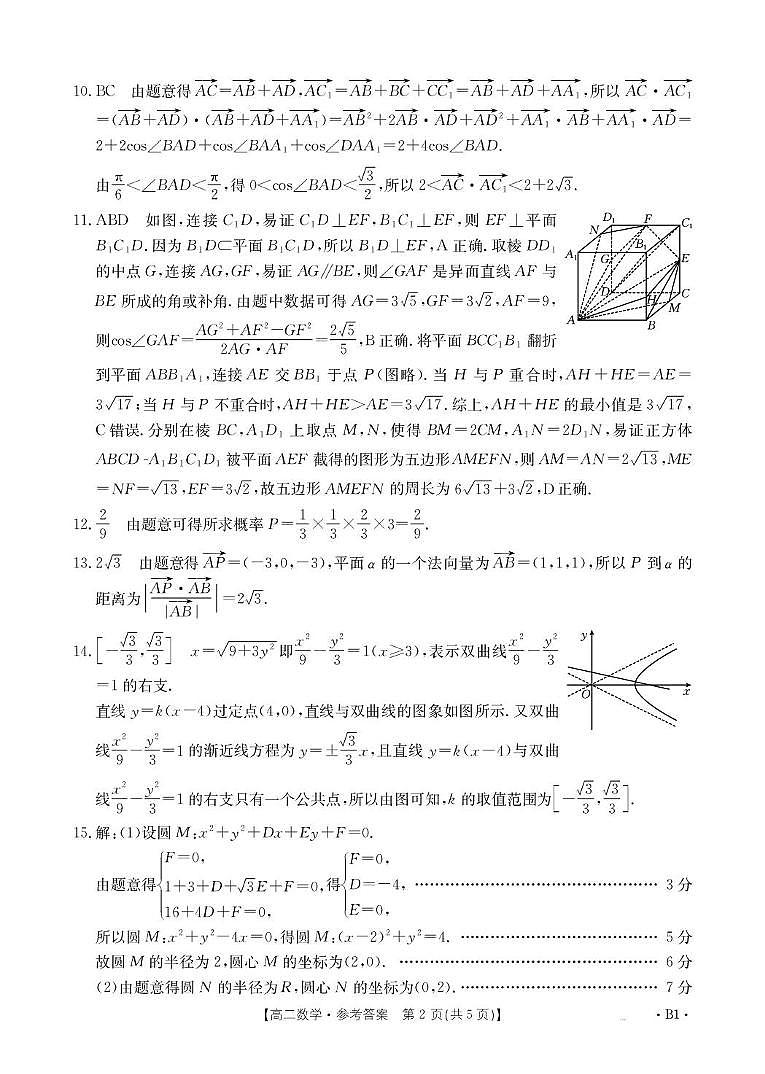 10. BC 由题意得 $\overrightarrow{AC}=\overrightarrow{AB}+\overrightarrow{AD}$,$\overrightarrow{AC_1}=\overrightarrow{AB}+\overrightarrow{BC}+\overrightarrow{CC_1}=\overrightarrow{AB}+\overrightarrow{AD}+\overrightarrow{AA_1}$,所以 $\overrightarrow{AC}\cdot\overrightarrow{AC_1}$
$=(\overrightarrow{AB}+\overrightarrow{AD})\cdot(\overrightarrow{AB}+\overrightarrow{AD}+\overrightarrow{AA_1})=\overrightarrow{AB}^2+2\overrightarrow{AB}\cdot\overrightarrow{AD}+\overrightarrow{AD}^2+\overrightarrow{AA_1}\cdot\overrightarrow{AB}+\overrightarrow{AA_1}\cdot\overrightarrow{AD}=$
$2+2\cos\angle BAD+\cos\angle BAA_1+\cos\angle DAA_1=2+4\cos\angle BAD.$
由$\frac{\pi}{6}<\angle BAD<\frac{\pi}{2}$,得 $0<\cos\angle BAD<\frac{\sqrt{3}}{2}$,所以 $2<\overrightarrow{AC}\cdot\overrightarrow{AC_1}<2+2\sqrt{3}$.
11. ABD 如图,连接 $C_1D$,易证 $C_1D\perp EF$,$B_1C_1\perp EF$,则 $EF\perp$平面
$B_1C_1D$.因为 $B_1D\subset$平面 $B_1C_1D$,所以 $B_1D\perp EF$,A 正确.取棱 $DD_1$
的中点 G,连接 AG,GF,易证 $AG\parallel BE$,则∠GAF 是异面直线 AF 与
BE 所成的角或补角.由题中数据可得 $AG=3\sqrt{5}$,$GF=3\sqrt{2}$,$AF=9$,
则$\cos\angle GAF=\frac{AG^2+AF^2-GF^2}{2AG\cdot AF}=\frac{2\sqrt{5}}{5}$,B 正确.将平面 $BCC_1B_1$ 翻折
到平面 $ABB_1A_1$,连接 AE 交 $BB_1$ 于点 P(图略).当 H 与 P 重合时,$AH+HE=AE=$
$3\sqrt{17}$;当 H 与 P 不重合时,$AH+HE>AE=3\sqrt{17}$.综上,$AH+HE$ 的最小值是 $3\sqrt{17}$,
C 错误.分别在棱 BC,$A_1D_1$ 上取点 M,N,使得 $BM=2CM$,$A_1N=2D_1N$,易证正方体
$ABCD-A_1B_1C_1D_1$ 被平面 AEF 截得的图形为五边形 AMEFN,则 $AM=AN=2\sqrt{13}$,$ME$
$=NF=\sqrt{13}$,$EF=3\sqrt{2}$,故五边形 AMEFN 的周长为 $6\sqrt{13}+3\sqrt{2}$,D 正确.
D₁ F C₁
N
A₁ B₁
G E
D C
H
M
A B
12. $\frac{2}{9}$ 由题意可得所求概率 $P=\frac{1}{3}\times\frac{1}{3}\times\frac{2}{3}\times3=\frac{2}{9}$.
13. $2\sqrt{3}$ 由题意得 $\overrightarrow{AP}=(-3,0,-3)$,平面 α 的一个法向量为 $\overrightarrow{AB}=(1,1,1)$,所以 P 到 α 的
距离为$\left|\frac{\overrightarrow{AP}\cdot\overrightarrow{AB}}{|\overrightarrow{AB}|}\right|=2\sqrt{3}$.
14. $\left[-\frac{\sqrt{3}}{3},\frac{\sqrt{3}}{3}\right]$ $x=\sqrt{9+3y^2}$ 即$\frac{x^2}{9}-\frac{y^2}{3}=1(x\geqslant3)$,表示双曲线$\frac{x^2}{9}-\frac{y^2}{3}$
$=1$ 的右支.
直线 $y=k(x-4)$过定点(4,0),直线与双曲线的图象如图所示.又双曲
线$\frac{x^2}{9}-\frac{y^2}{3}=1$ 的渐近线方程为 $y=\pm\frac{\sqrt{3}}{3}x$,且直线 $y=k(x-4)$与双曲
线$\frac{x^2}{9}-\frac{y^2}{3}=1$ 的右支只有一个公共点,所以由图可知,k 的取值范围为$\left[-\frac{\sqrt{3}}{3},\frac{\sqrt{3}}{3}\right]$.
y
O x
15. 解:(1)设圆 M:$x^2+y^2+Dx+Ey+F=0$.
由题意得$\begin{cases}F=0,\\1+3+D+\sqrt{3}E+F=0,\\16+4D+F=0,\end{cases}$得$\begin{cases}F=0,\\D=-4,\\E=0,\end{cases}$ …………………………………… 3 分
所以圆 M:$x^2+y^2-4x=0$,得圆 M:$(x-2)^2+y^2=4$. …………………………… 5 分
故圆 M 的半径为 2,圆心 M 的坐标为(2,0). …………………………………… 6 分
(2)由题意得圆 N 的半径为 R,圆心 N 的坐标为(0,2). …………………………… 7 分
【高二数学·参考答案 第 2 页(共 5 页)】 ·B1·